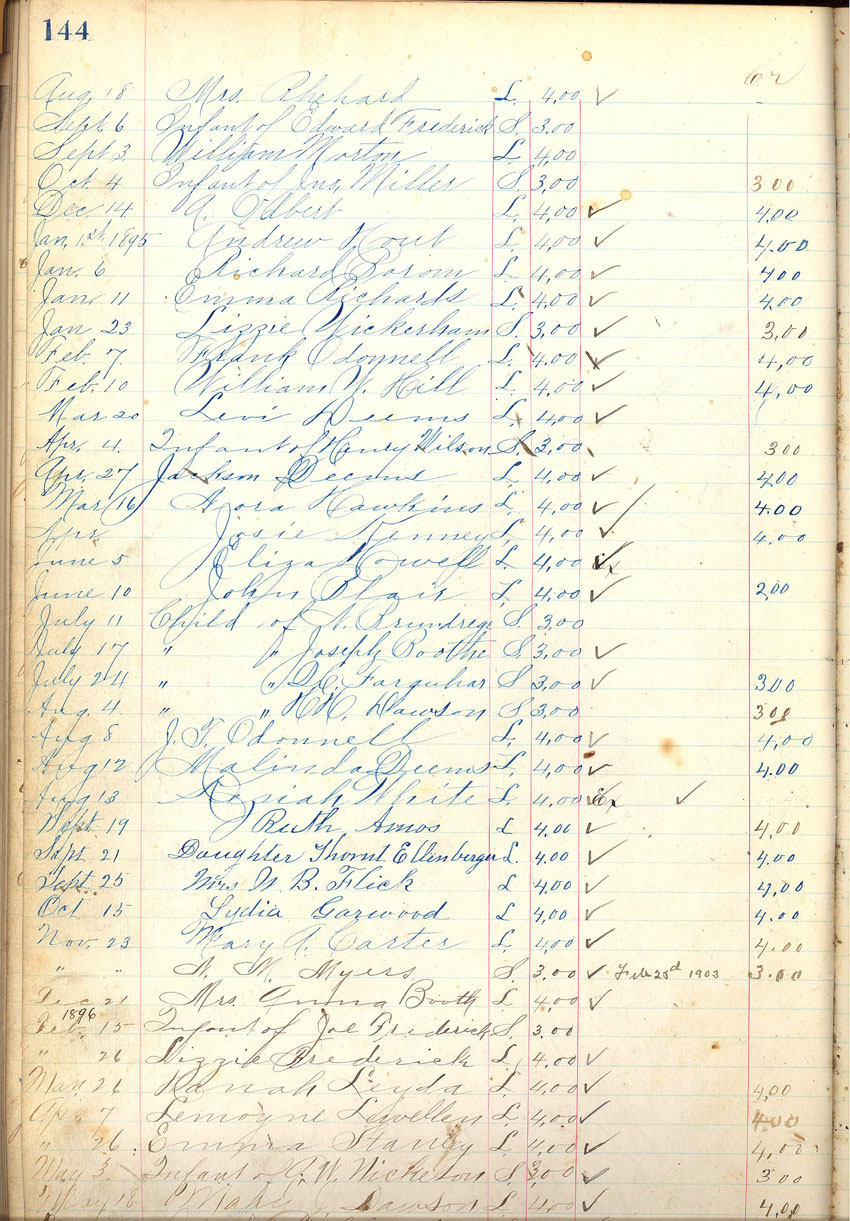 144
Cr
Aug. 18 Mrs. Rhehard L. 4.00 ✓
Sept. 6 Infant of Edward Frederick S. 3.00
Sept 3 William Morton L. 4.00
Oct. 4 Infant of Jno. Miller S. 3.00 3 00
Dec. 14 A. Olbert L. 4.00 ✓ 4.00
Jan. 1st. 1895 Andrew Hout L. 4.00 ✓ 4.00
Jan. 6 Richard Borom L. 4.00 ✓ 4 00
Jan 11 Emma Richards L. 4.00 ✓ 4.00
Jan 23 Lizzie Wickerham S. 3.00 ✓ 3.00
Feb. 7 Frank Odonnell L. 4.00 ✓ 4,00
Feb. 10 William W. Hill L. 4.00 ✓ 4,00
Mar 20 Levi Deems L. 4.00 ✓
Apr. 4. Infant of Henry Wilson S. 3.00 3 00
Apr. 27 Jackson Deems L. 4.00 ✓ 4.00
Mar 16 Hawkins L. 4.00 ✓ 4.00
Apr. Josie Kenney L. 4.00 ✓ 4.00
June 5 Eliza Powell L. 4.00 Ex
June 10 John Blair L. 4.00 ✓ 2,00
July 11 Child of N. Brundrege S. 3.00
July 17 " " Joseph Boothe S. 3.00 ✓
July 24 " " Farquhar S. 3.00 ✓ 3 00
Aug. 4 " " Dawson S. 3.00 3 00
Aug 8 J. T. Odonnell L. 4.00 ✓ 4,00
Aug 12 Malinda Deems L. 4.00 ✓ 4.00
Aug 13 White L. 4.00 Ex ✓
Sept 19 Ruth Amos L 4.00 ✓ 4,00
Sept 21 Daughter Thornt Ellenberger L. 4.00 ✓ 4.00
Sept. 25 Mrs W. B. Flick L 4.00 ✓ 4,00
Oct 15 Lydia Garwood L 4,00 ✓ 4.00
Nov. 23 Mary A. Carter L. 4.00 ✓ 4.00
" " N. M. Myers S. 3.00 ✓ Feb 25d 1903 3.00
Dec 21 Mrs. Anna Booth L. 4.00 ✓
1896
Feb. 15 Infant of Joe Frederick S. 3.00
" 26 Lizzie Frederick L. 4.00 ✓
Mar. 26 Hanah Leyda L. 4.00 ✓ 4,00
Apr 7 Lemoyne Lewellen L. 4.00 ✓ 4.00
" 26 Emma Stanley L. 4,00 ✓ 4,00
May 3. Infant of Nickeson S. 3.00 ✓ 3 00
May 18 Mary J. Dawson L. 4.00 ✓ 4,00